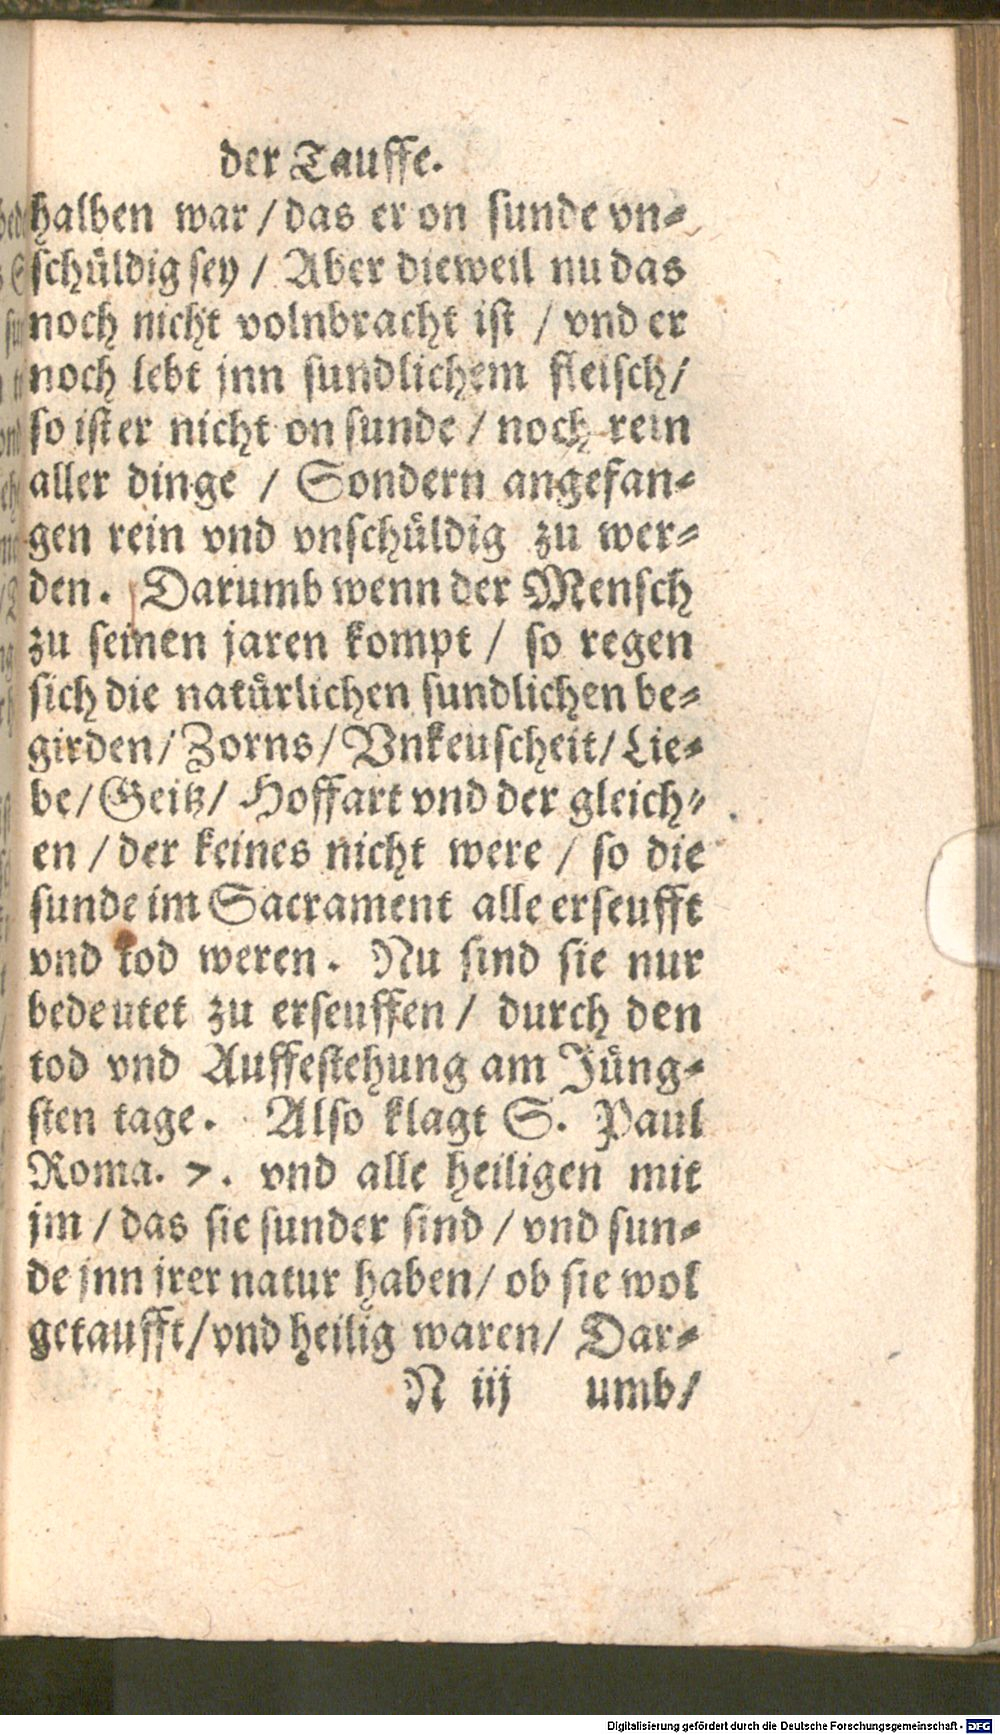 der Tauffe.
halben war / das er on sunde vn-
schüldig sey / Aber dieweil nu das
noch nicht volnbracht ist / vnd er
noch lebt jnn sundlichem fleisch /
so ist er nicht on sunde / noch rein
aller dinge / Sondern angefan-
gen rein vnd vnschüldig zu wer-
den. Darumb wenn der Mensch
zu seinen jaren kompt / so regen
sich die natürlichen sundlichen be-
girden / Zorns / Vnkeuscheit / Lie-
be / Geitz / Hoffart vnd der gleich-
en / der keines nicht were / so die
sunde im Sacrament alle erseufft
vnd tod weren. Nu sind sie nur
bedeutet zu erseuffen / durch den
tod vnd Aufferstehung am Jüng-
sten tage. Also klagt S. Paul
Roma. 7. vnd alle heiligen mit
jm / das sie sunder sind / vnd sun-
de jnn jrer natur haben / ob sie wol
getaufft / vnd heilig waren / Dar-
N iij umb /
Digitalisierung gefördert durch die Deutsche Forschungsgemeinschaft - DFG